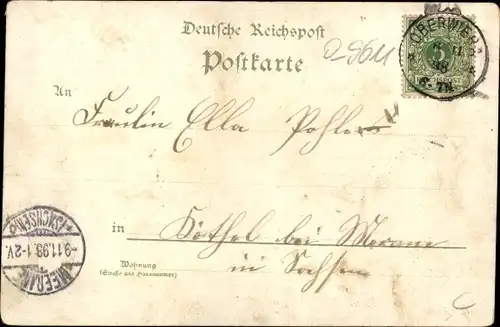 Deutsche Reichspost
Postkarte
D-9611
OBERWIERA
8 11
98
6-7N.
An
Fräulein Ella Pohlers
in Köthel bei Merane
in Sachsen
Wohnung
(Straße und Hausnummer)
MEERANE
9.11.98.1-2V.
(SACHSEN)
C